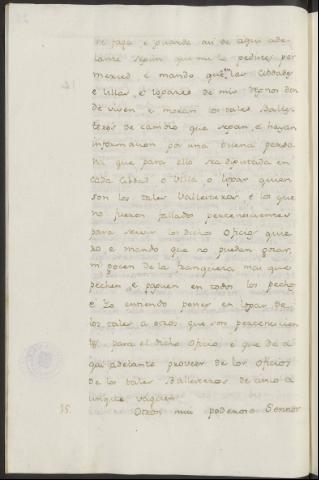 se faga e guarde asi de aqui ade-
lante segun que me lo pedistes por
merced e mando que en las Cibdades
e Villas e logares de mis Regnos don
de viven e moran los tales Balles
teros de cambio que sepan e hayan
informacion por una buena perso
na que para ello sea diputada en
cada Cibdad o Villa o logar quien
son los tales Vallesteros e los que
no fueren fallado pertenescientes
para servir los dichos oficios quie
ro e mando que no puedan gozar
ni gocen de la franqueza mas que
pechen e paguen en todos los pechos
e Yo entiendo poner en logar de
los tales a otros que son pertenecien
tes para el dicho oficio e que de a
qui adelante proveer de los oficios
de los tales Ballesteros de uno a
uno que vaguen
35. Otrosi mui poderoso Sennor